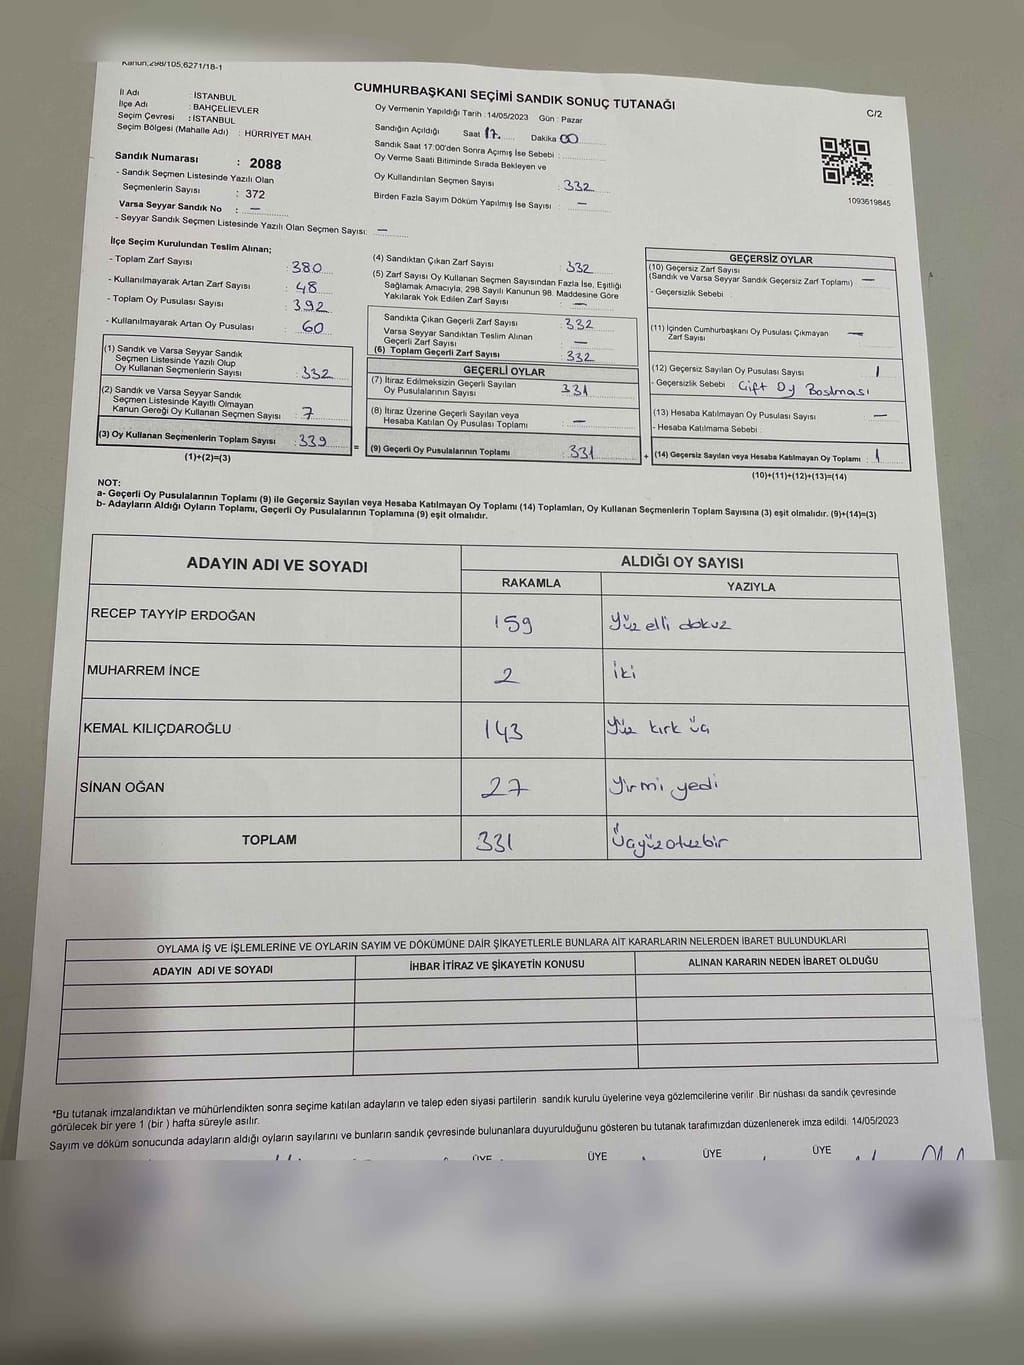 Kanun,298/105,6271/18-1
CUMHURBAŞKANI SEÇİMİ SANDIK SONUÇ TUTANAĞI
C/2
İl Adı : İSTANBUL
İlçe Adı : BAHÇELİEVLER
Seçim Çevresi : İSTANBUL
Seçim Bölgesi (Mahalle Adı) : HÜRRİYET MAH.
Sandık Numarası : 2088
- Sandık Seçmen Listesinde Yazılı Olan
Seçmenlerin Sayısı : 372
Varsa Seyyar Sandık No : —
- Seyyar Sandık Seçmen Listesinde Yazılı Olan Seçmen Sayısı: —
Oy Vermenin Yapıldığı Tarih : 14/05/2023 Gün : Pazar
Sandığın Açıldığı Saat 17 Dakika 00
Sandık Saat 17:00'den Sonra Açımış İse Sebebi :
Oy Verme Saati Bitiminde Sırada Bekleyen ve
Oy Kullandırılan Seçmen Sayısı : 332
Birden Fazla Sayım Döküm Yapılmış İse Sayısı : —
1093619845
İlçe Seçim Kurulundan Teslim Alınan;
- Toplam Zarf Sayısı : 380
- Kullanılmayarak Artan Zarf Sayısı : 48
- Toplam Oy Pusulası Sayısı : 392
- Kullanılmayarak Artan Oy Pusulası : 60
(1) Sandık ve Varsa Seyyar Sandık
Seçmen Listesinde Yazılı Olup
Oy Kullanan Seçmenlerin Sayısı : 332
(2) Sandık ve Varsa Seyyar Sandık
Seçmen Listesinde Kayıtlı Olmayan
Kanun Gereği Oy Kullanan Seçmen Sayısı : 7
(3) Oy Kullanan Seçmenlerin Toplam Sayısı : 339
(1)+(2)=(3)
(4) Sandıktan Çıkan Zarf Sayısı : 332
(5) Zarf Sayısı Oy Kullanan Seçmen Sayısından Fazla İse, Eşitliği
Sağlamak Amacıyla, 298 Sayılı Kanunun 98. Maddesine Göre
Yakılarak Yok Edilen Zarf Sayısı : —
Sandıkta Çıkan Geçerli Zarf Sayısı : 332
Varsa Seyyar Sandıktan Teslim Alınan
Geçerli Zarf Sayısı : —
(6) Toplam Geçerli Zarf Sayısı : 332
GEÇERLİ OYLAR
(7) İtiraz Edilmeksizin Geçerli Sayılan
Oy Pusulalarının Sayısı : 331
(8) İtiraz Üzerine Geçerli Sayılan veya
Hesaba Katılan Oy Pusulası Toplamı : —
= (9) Geçerli Oy Pusulalarının Toplamı : 331
GEÇERSİZ OYLAR
(10) Geçersiz Zarf Sayısı
(Sandık ve Varsa Seyyar Sandık Geçersiz Zarf Toplamı) —
- Geçersizlik Sebebi :
(11) İçinden Cumhurbaşkanı Oy Pusulası Çıkmayan
Zarf Sayısı —
(12) Geçersiz Sayılan Oy Pusulası Sayısı 1
- Geçersizlik Sebebi : Çift Oy Basılması
(13) Hesaba Katılmayan Oy Pusulası Sayısı —
- Hesaba Katılmama Sebebi :
+ (14) Geçersiz Sayılan veya Hesaba Katılmayan Oy Toplamı : 1
(10)+(11)+(12)+(13)=(14)
NOT:
a- Geçerli Oy Pusulalarının Toplamı (9) ile Geçersiz Sayılan veya Hesaba Katılmayan Oy Toplamı (14) Toplamları, Oy Kullanan Seçmenlerin Toplam Sayısına (3) eşit olmalıdır. (9)+(14)=(3)
b- Adayların Aldığı Oyların Toplamı, Geçerli Oy Pusulalarının Toplamına (9) eşit olmalıdır.
ADAYIN ADI VE SOYADI
ALDIĞI OY SAYISI
RAKAMLA YAZIYLA
RECEP TAYYİP ERDOĞAN 159 Yüz elli dokuz
MUHARREM İNCE 2 İki
KEMAL KILIÇDAROĞLU 143 Yüz kırk üç
SİNAN OĞAN 27 Yirmi yedi
TOPLAM 331 Üçyüzotuzbir
OYLAMA İŞ VE İŞLEMLERİNE VE OYLARIN SAYIM VE DÖKÜMÜNE DAİR ŞİKAYETLERLE BUNLARA AİT KARARLARIN NELERDEN İBARET BULUNDUKLARI
ADAYIN ADI VE SOYADI İHBAR İTİRAZ VE ŞİKAYETİN KONUSU ALINAN KARARIN NEDEN İBARET OLDUĞU
*Bu tutanak imzalandıktan ve mühürlendikten sonra seçime katılan adayların ve talep eden siyasi partilerin sandık kurulu üyelerine veya gözlemcilerine verilir. Bir nüshası da sandık çevresinde
görülecek bir yere 1 (bir ) hafta süreyle asılır.
Sayım ve döküm sonucunda adayların aldığı oyların sayılarını ve bunların sandık çevresinde bulunanlara duyurulduğunu gösteren bu tutanak tarafımızdan düzenlenerek imza edildi. 14/05/2023
ÜYE ÜYE ÜYE ÜYE